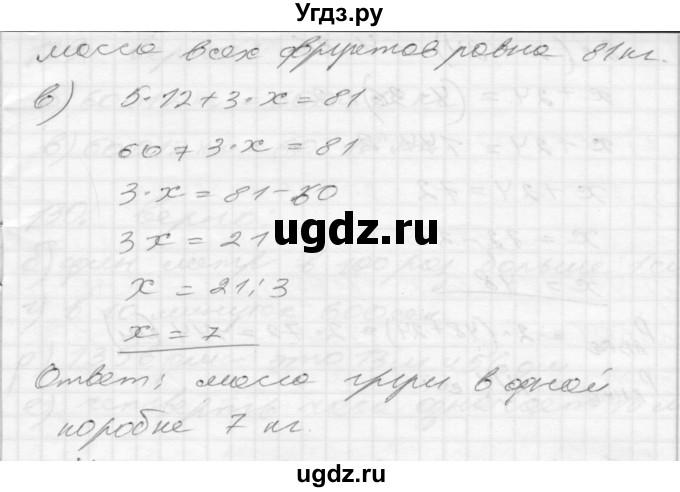 Угдз.ру
масса всех фруктов равна 81 кг.
в) 5·12+3·x=81
60+3·x=81
3·x=81-60
3x=21
ugdz.ru
x=21:3
x=7
Ответ: масса груш в одной
коробке 7 кг.
ugdz.ru